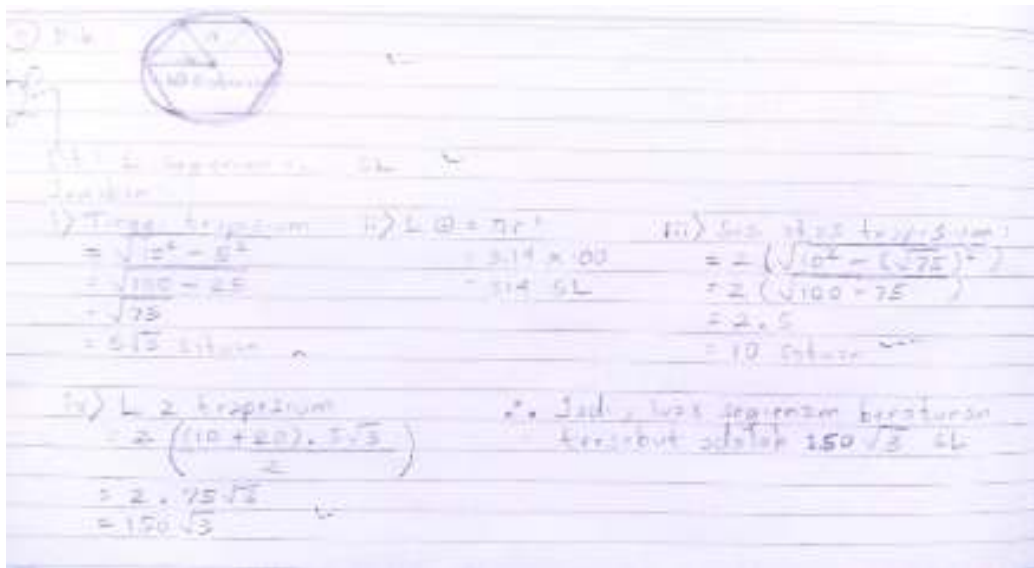 Jawaban
i) Tinggi trapesium
= √10² - 5²
= √100 - 25
= √75
= 5√3 satuan
ii) L = πr²
= 3,14 × 100
= 314 SL
iii) Sisi atas trapesium:
= 2 (√10² - (√75)²)
= 2 (√100 - 75)
= 2 . 5
= 10 satuan
iv) L 2 trapesium
= 2 ((10 + 20) . 5√3 / 2)
= 2 . 75√3
= 150√3
∴ Jadi, luas segienam beraturan
tersebut adalah 150√3 SL